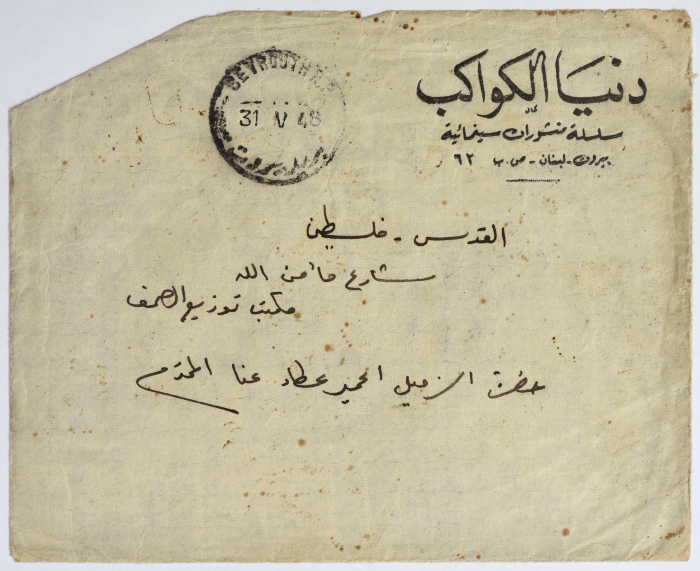 دنيا الكواكب
سلسلة منشورات سينمائية
بيروت - لبنان - ص. ب ٦٢
BEYROUTH R.P.
31 V 48
بيروت
القدس - فلسطين
شارع مأمن الله
مكتب توزيع الصحف
حضرة الزميل الحميد عطا الله حنا المحترم